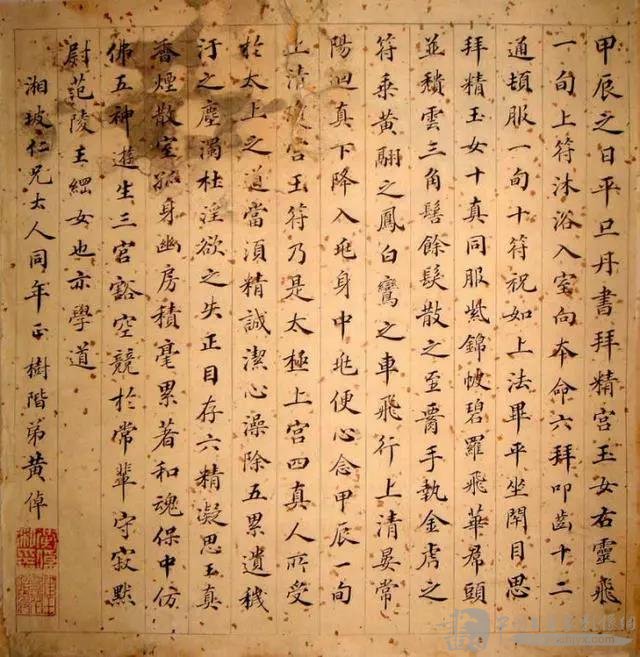 甲辰之日平旦丹書拜精宮玉女右靈飛
一旬上符沐浴入室向本命六拜叩齒十二
通頓服一旬十符祝如上法畢平坐閉目思
拜精玉女十真同服紫錦帔碧羅飛華帬頭
並穨雲三角髻餘髮散之至腰手執金虎之
符乗黃翮之鳳白鸞之車飛行上清晏常
陽迴真下降入兆身中兆便心念甲辰一旬
上清瓊宮玉符乃是太極上宮四真人所受
於太上之道當須精誠潔心澡除五累遺穢
汙之塵濁杜淫欲之失正目存六精凝思玉真
香煙散室孤身幽房積毫累著和魂保中仿
佛五神遊生三宮豁空競於常輩守寂默
尉范陵王綱女也亦學道
湘坡仁兄大人同年正 樹階弟黃倬